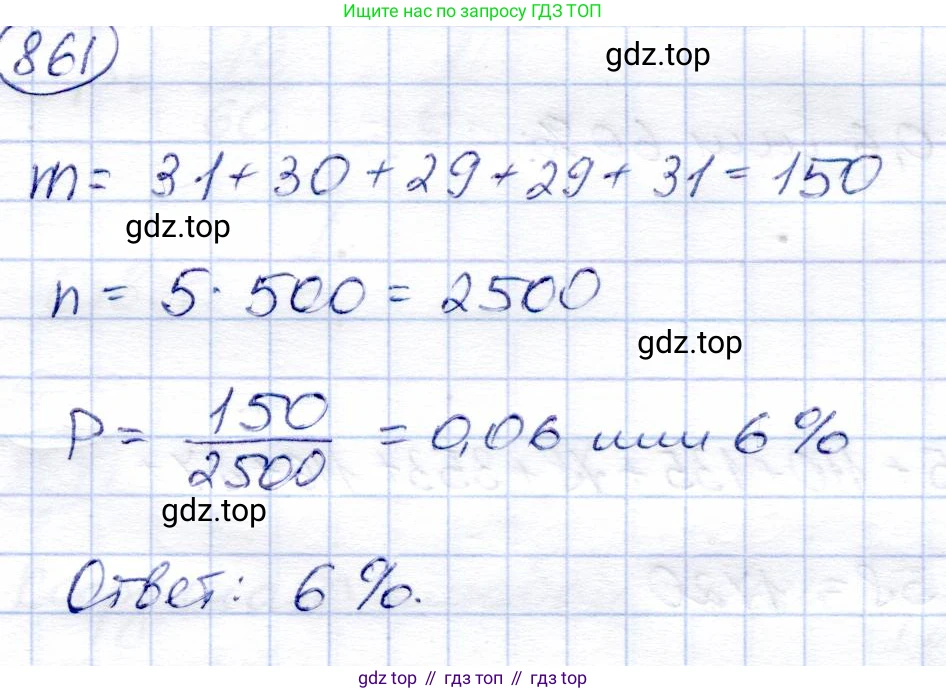 Ищите нас по запросу ГДЗ ТОП
861
gdz.top
m = 31 + 30 + 29 + 29 + 31 = 150
gdz.top
n = 5 · 500 = 2500
gdz.top
P = 150/2500 = 0,06 или 6 %
gdz.top
Ответ: 6 %.
gdz top // гдз топ // gdz top